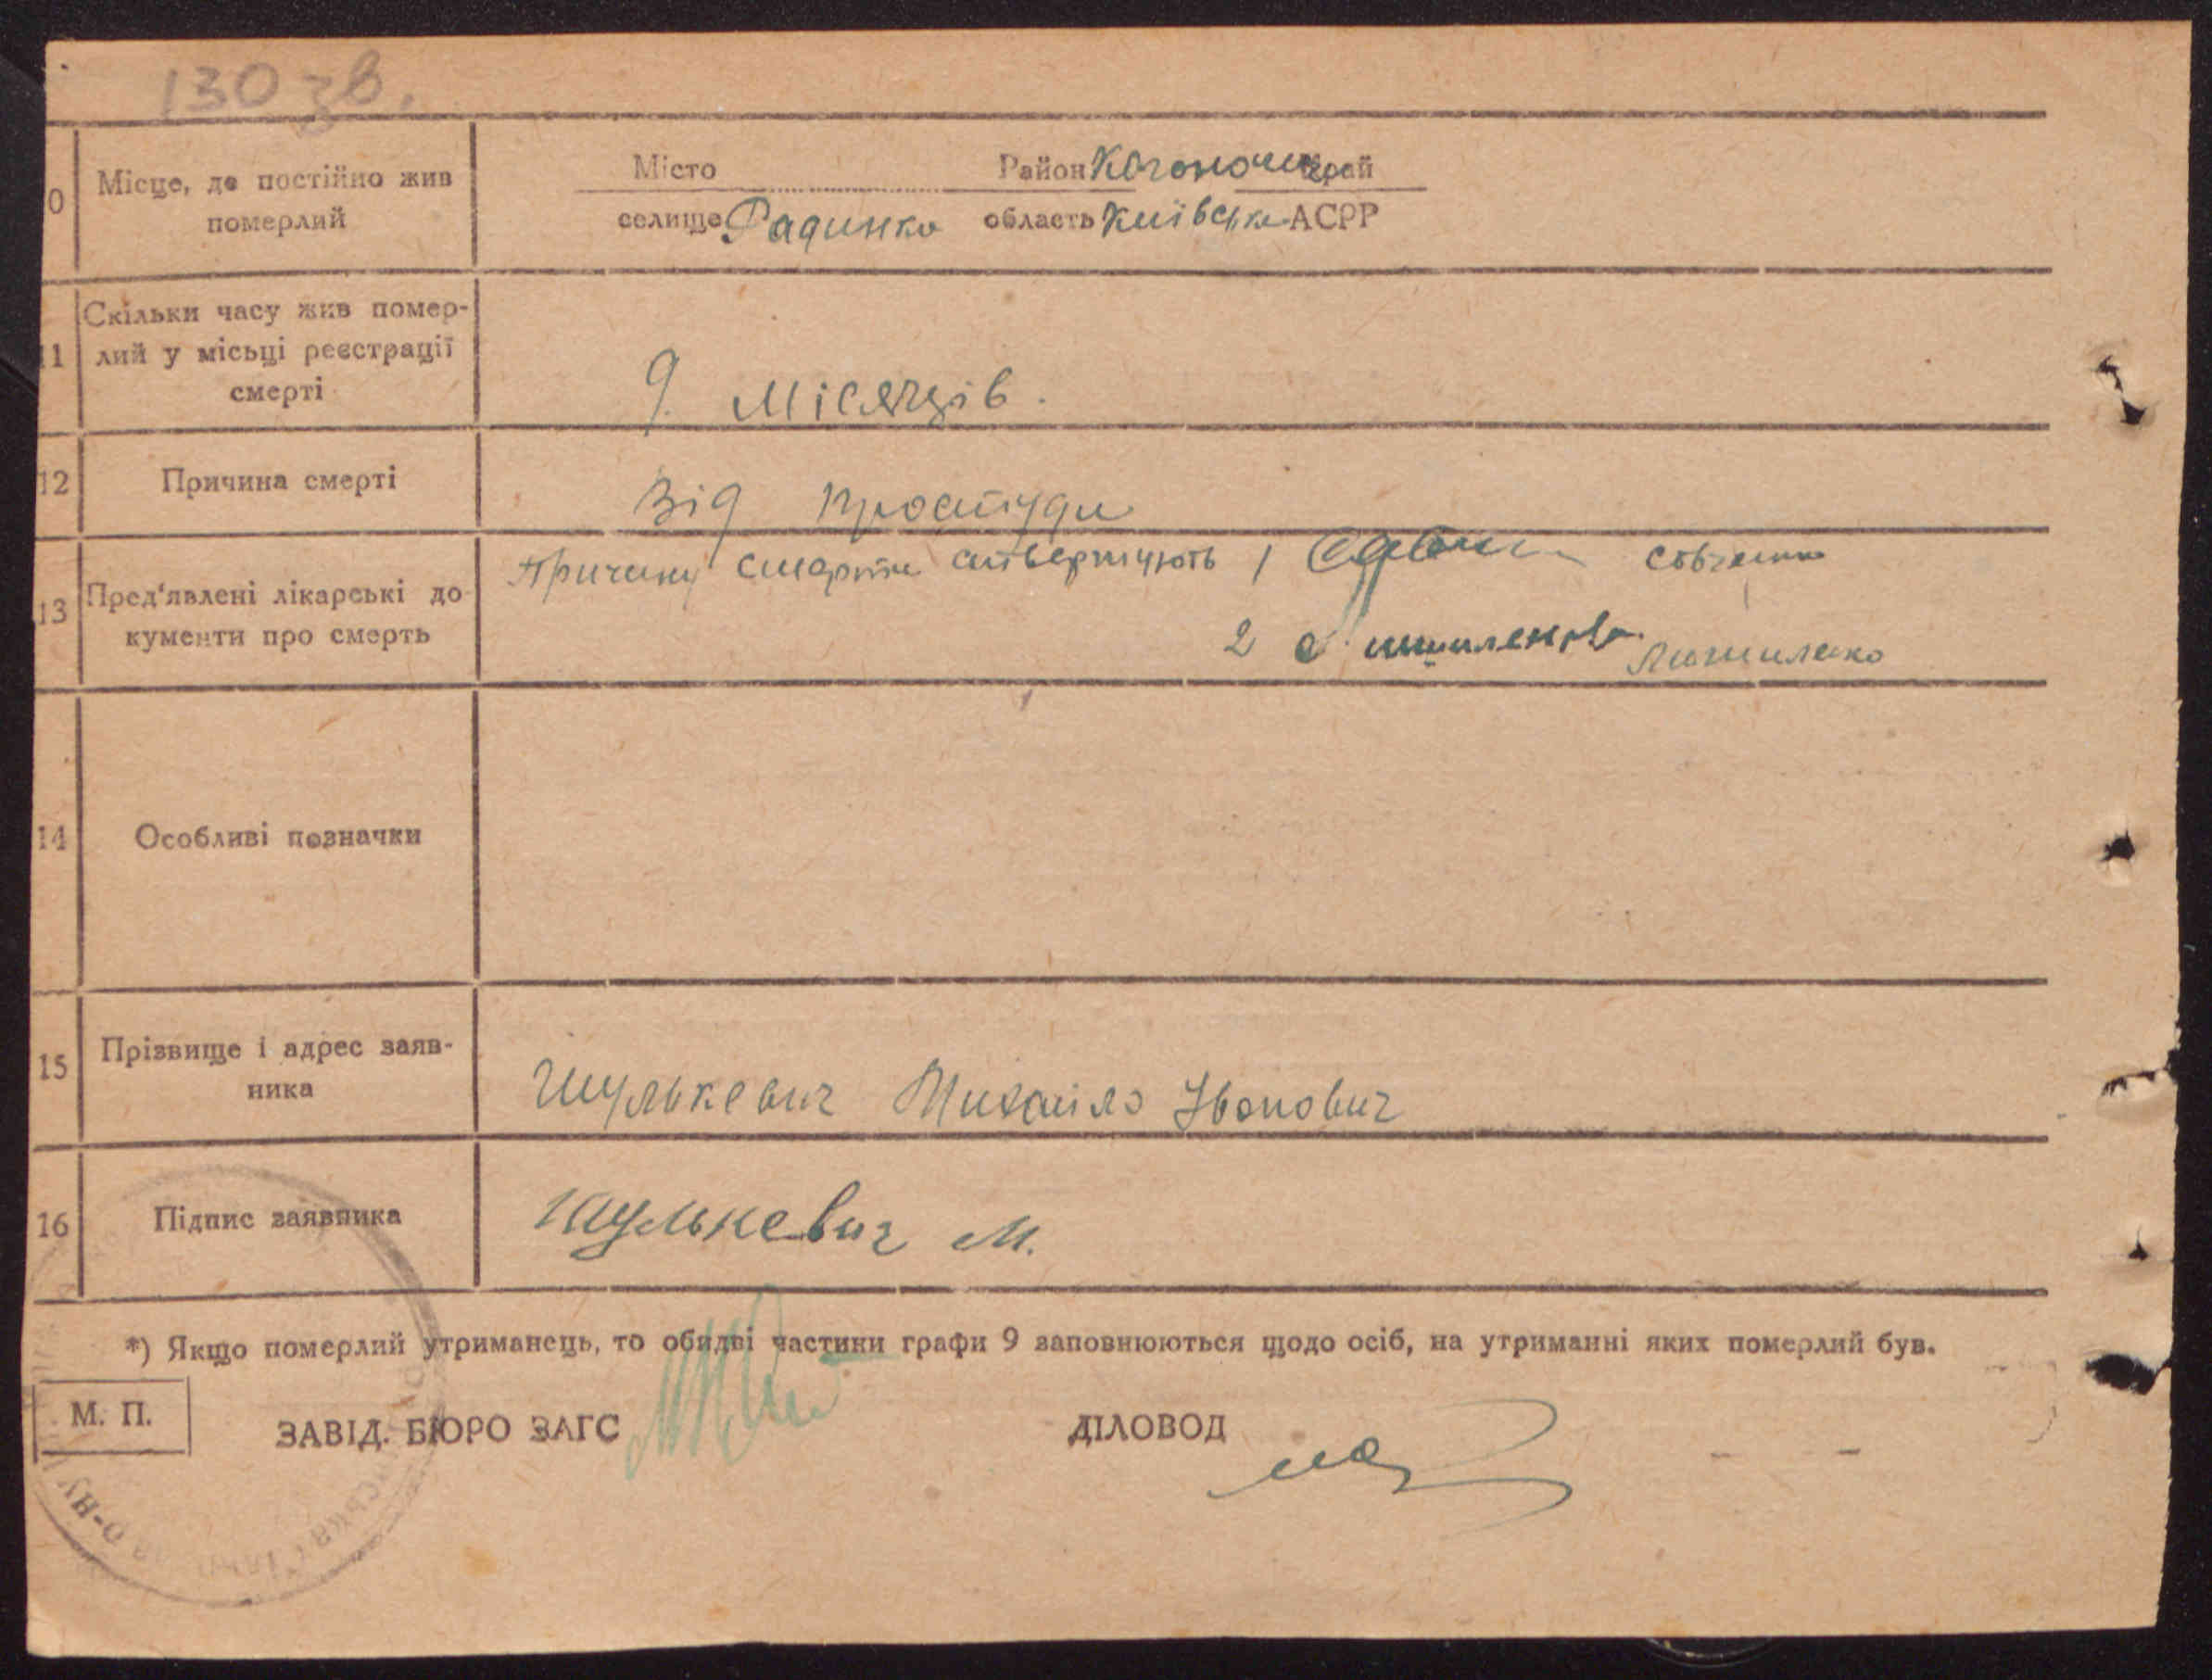 130 зв.
0 Місце, де постійно жив померлий
Місто Район край
селище Радинка область Київська АСРР
11 Скільки часу жив помер-
лий у місьці реєстрації
смерті
9 місяців.
12 Причина смерті
Від простуди
13 Пред'явлені лікарські до
кументи про смерть
Причину смерти 1
2
14 Особливі позначки
15 Прізвище і адрес заяв-
ника
Шулькевич Михаіло Іванович
16 Підпис заявника
Шулькевич М.
*) Якщо померлий утриманець, то обидві частини графи 9 заповнюються щодо осіб, на утриманні яких померлий був.
М. П.
ЗАВІД. БЮРО ЗАГС ДІЛОВОД